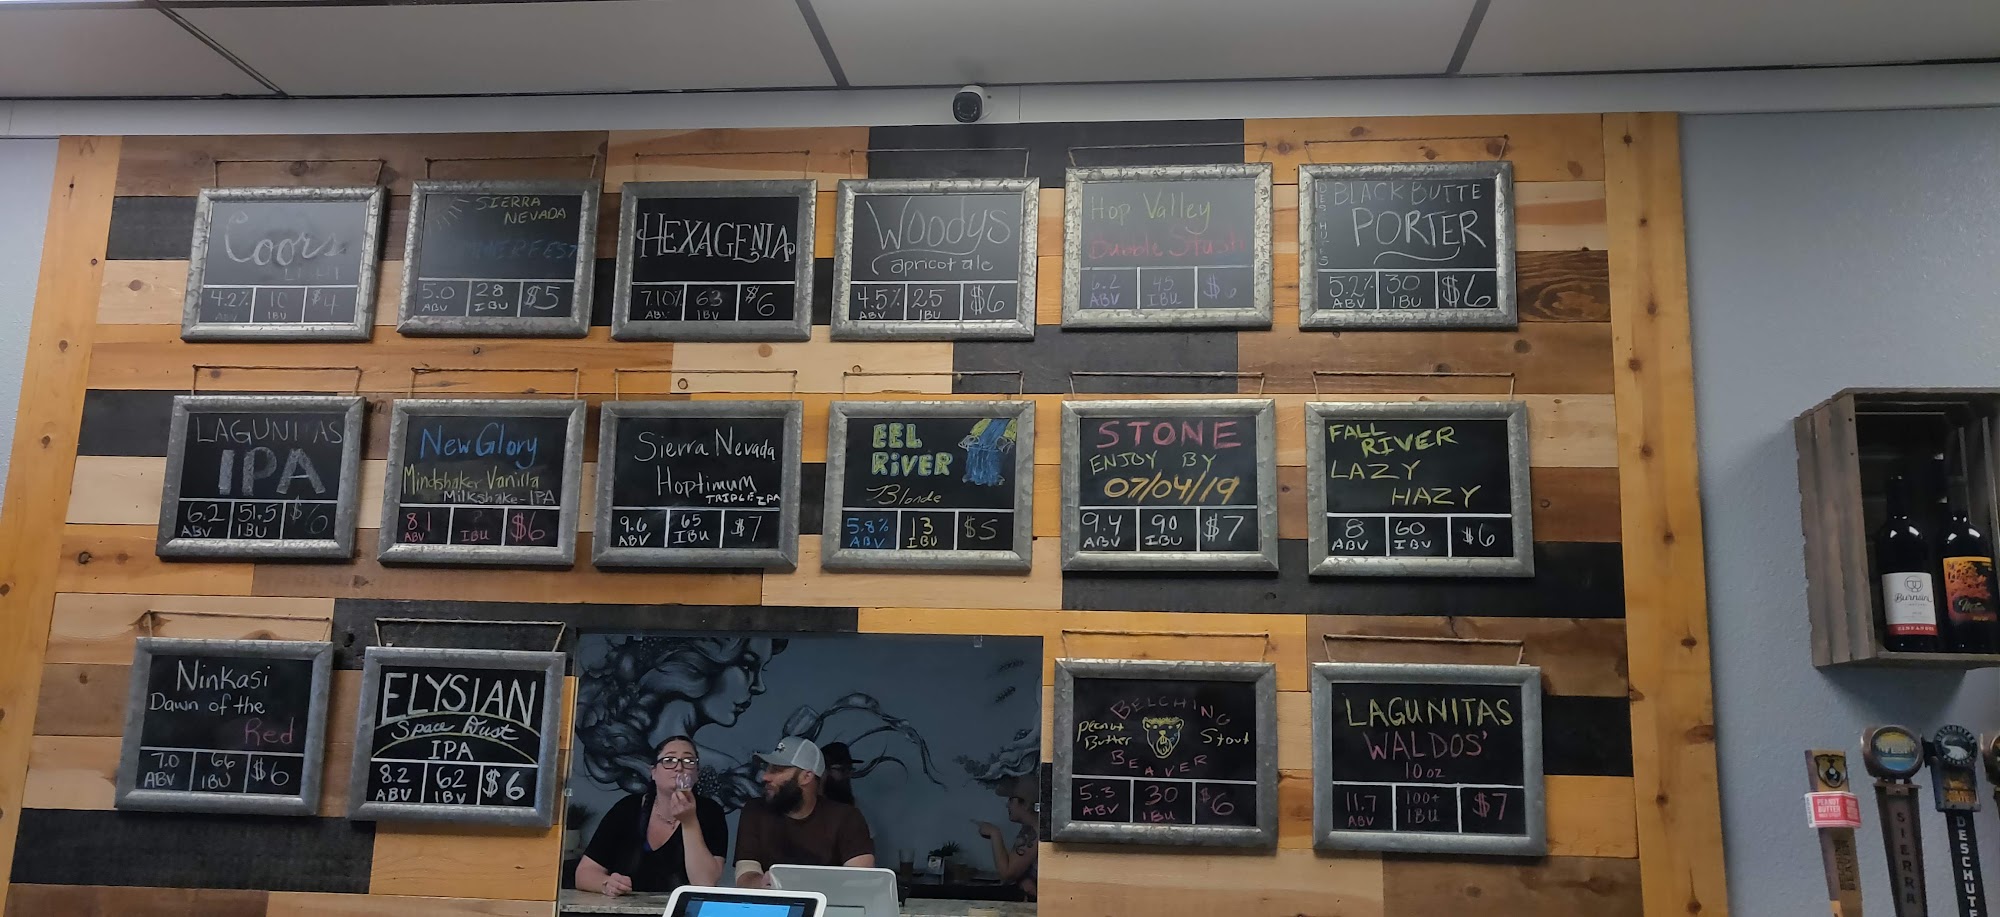 Coors
LIGHT
4.2% 10 $4
ABV IBU
SIERRA
NEVADA
5.0 28 $5
ABV IBU
HEXAGENIA
7.10% 63 $6
ABV IBU
Woodys
apricot ale
4.5% 25 $6
ABV IBU
Hop Valley
Bubble Stash
6.2 45 $6
ABV IBU
DESCHUTES
BLACK BUTTE
PORTER
5.2% 30 $6
ABV IBU
LAGUNITAS
IPA
6.2 51.5 $6
ABV IBU
New Glory
Mindshaker Vanilla
Milkshake-IPA
8.1 ? $6
ABV IBU
Sierra Nevada
Hoptimum
TRIPLE IPA
9.6 65 $7
ABV IBU
EEL
RIVER
Blonde
5.8% 13 $5
ABV IBU
STONE
ENJOY BY
07/04/19
9.4 90 $7
ABV IBU
FALL
RIVER
LAZY
HAZY
8 60 $6
ABV IBU
Ninkasi
Dawn of the
Red
7.0 66 $6
ABV IBU
ELYSIAN
Space Dust
IPA
8.2 62 $6
ABV IBU
BELCHING
Peanut
Butter Stout
BEAVER
5.3 30 $6
ABV IBU
LAGUNITAS
WALDOS'
10 oz
11.7 100+ $7
ABV IBU
PEANUT
BUTTER
SIERR
DESCHUTE